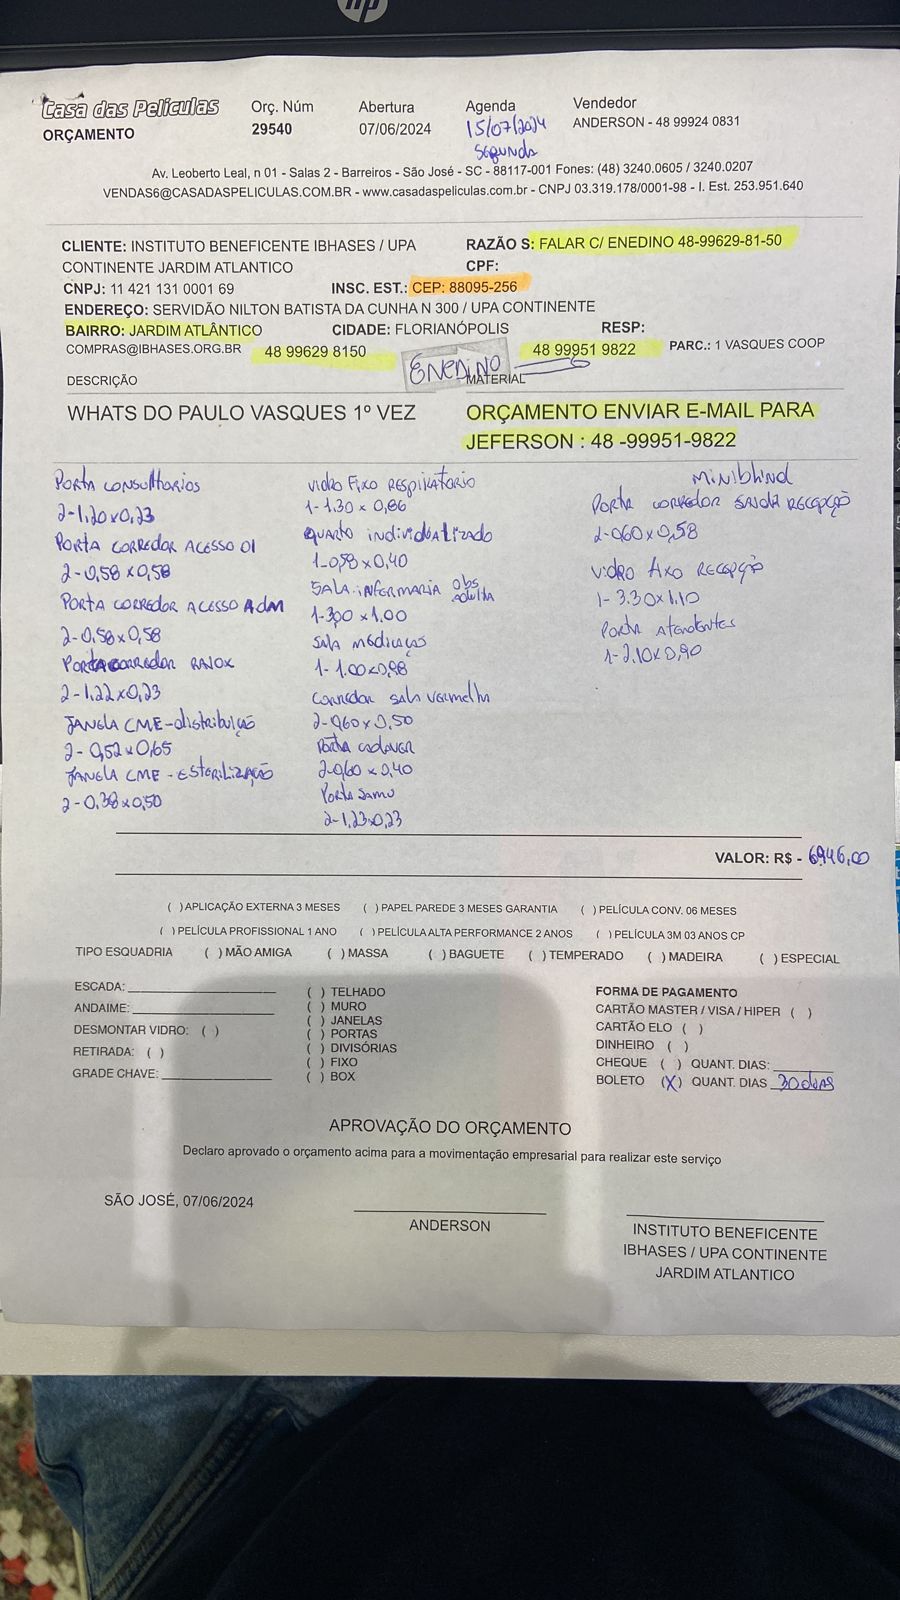 hp
Casa das Películas
ORÇAMENTO
Orç. Núm
29540
Abertura
07/06/2024
Agenda
15/07/2024
Segunda
Vendedor
ANDERSON - 48 99924 0831
Av. Leoberto Leal, n 01 - Salas 2 - Barreiros - São José - SC - 88117-001 Fones: (48) 3240.0605 / 3240.0207
VENDAS6@CASADASPELICULAS.COM.BR - www.casadaspeliculas.com.br - CNPJ 03.319.178/0001-98 - I. Est. 253.951.640
CLIENTE: INSTITUTO BENEFICENTE IBHASES / UPA
CONTINENTE JARDIM ATLANTICO
RAZÃO S: FALAR C/ ENEDINO 48-99629-81-50
CPF:
CNPJ: 11 421 131 0001 69
INSC. EST.: CEP: 88095-256
ENDEREÇO: SERVIDÃO NILTON BATISTA DA CUNHA N 300 / UPA CONTINENTE
BAIRRO: JARDIM ATLÂNTICO
CIDADE: FLORIANÓPOLIS
RESP:
COMPRAS@IBHASES.ORG.BR
48 99629 8150
ENEDINO
48 99951 9822
PARC.: 1 VASQUES COOP
DESCRIÇÃO
MATERIAL
WHATS DO PAULO VASQUES 1º VEZ
ORÇAMENTO ENVIAR E-MAIL PARA
JEFERSON : 48 -99951-9822
PORTA CONSULTORIOS
2-1,20x0,23
PORTA CORREDOR ACESSO 01
2-0,58x0,58
PORTA CORREDOR ACESSO ADM
2-0,58x0,58
PORTA CORREDOR RAIOX
2-1,22x0,23
JANELA CME-distribuição
2-0,52x0,65
JANELA CME-ESTERILIZAÇÃO
2-0,38x0,50
VIDRO FIXO RESPIRATORIO
1-1.30x0,86
QUARTO individualizado
1-0,58x0,40
SALA INFERMARIA obs adulta
1-3,00x1.00
SALA MEDICAÇAO
1-1.00x0,98
CORREDOR SALA VERMELHA
2-0,60x0,50
PORTA CADAVER
2-0,60x0,40
PORTA SAMU
2-1,23x0,23
MINIBLIND
PORTA CORREDOR SAIDA RECEPÇÃO
2-0,60x0,58
VIDRO FIXO RECEPÇÃO
1-3.30x1.10
PORTA Atendentes
1-2.10x0,90
VALOR: R$ - 6946,00
( ) APLICAÇÃO EXTERNA 3 MESES ( ) PAPEL PAREDE 3 MESES GARANTIA ( ) PELÍCULA CONV. 06 MESES
( ) PELÍCULA PROFISSIONAL 1 ANO ( ) PELÍCULA ALTA PERFORMANCE 2 ANOS ( ) PELÍCULA 3M 03 ANOS CP
TIPO ESQUADRIA ( ) MÃO AMIGA ( ) MASSA ( ) BAGUETE ( ) TEMPERADO ( ) MADEIRA ( ) ESPECIAL
ESCADA:
ANDAIME:
DESMONTAR VIDRO: ( )
RETIRADA: ( )
GRADE CHAVE:
( ) TELHADO
( ) MURO
( ) JANELAS
( ) PORTAS
( ) DIVISÓRIAS
( ) FIXO
( ) BOX
FORMA DE PAGAMENTO
CARTÃO MASTER / VISA / HIPER ( )
CARTÃO ELO ( )
DINHEIRO ( )
CHEQUE ( ) QUANT. DIAS:
BOLETO (X) QUANT. DIAS 30 dias
APROVAÇÃO DO ORÇAMENTO
Declaro aprovado o orçamento acima para a movimentação empresarial para realizar este serviço
SÃO JOSÉ, 07/06/2024
ANDERSON
INSTITUTO BENEFICENTE
IBHASES / UPA CONTINENTE
JARDIM ATLANTICO